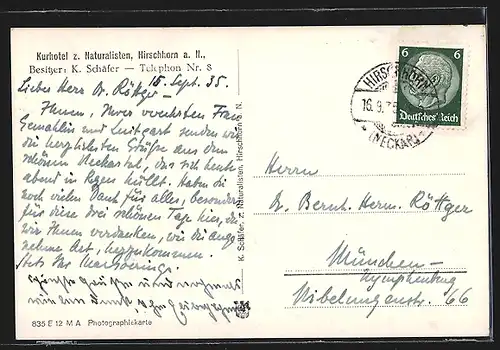 Kurhotel z. Naturalisten, Hirschhorn a. N.,
Besitzer: K. Schäfer — Telephon Nr. 8
15. Sept. 35.
Lieber Herr Dr. Röttger –
Ihnen, Ihrer verehrten Frau
Gemahlin und Luitgart senden wir
die herzlichsten Grüße aus dem
schönen Neckartal, das sich heute
abend in Regen hüllt. Haben Sie
noch vielen Dank für alles, besonders
für diese drei schönen Tage hier, die
wir Ihnen verdanken, wie die ange
nehme Art, herzukommen.
Stets Ihr
835 E 12 M A Photographiekarte
K. Schäfer, z. Naturalisten, Hirschhorn a. N.
6 6
Deutsches Reich
HIRSCHHORN
16.9.35
(NECKAR)
Herrn
Dr. Bernh. Herm. Röttger
München-
Nymphenburg
Nibelungenstr. 66